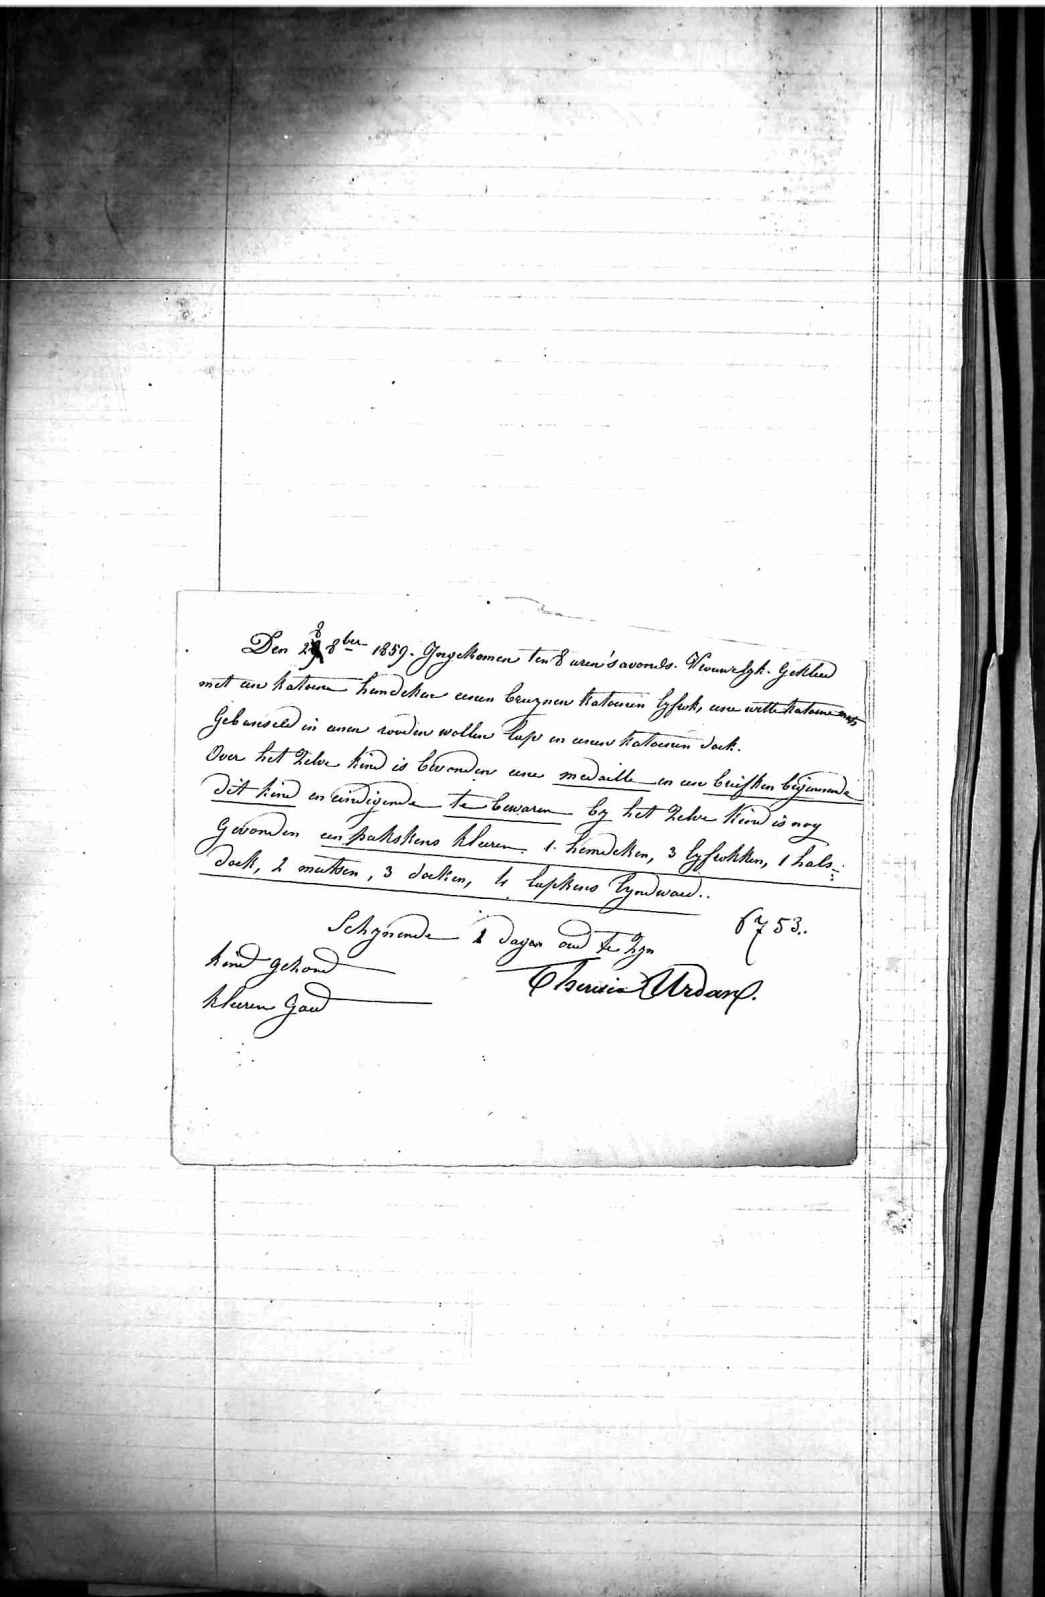 Den 28 8ber 1859. Ingekomen ten 8 uren 's avonds. Vrouwelyk. Gekleed
met een katoene hemdeken eenen bruynen katoenen lyfrok, eene witte katoene muts
Gebonseld in eenen rooden wollen lap en eenen katoenen doek.
Over het zelve kind is bevonden eene medaille en een briefken beginnende
dit kind en eindigende te bewaren by het zelve kind is nog
Gevonden een pakskens kleeren. 1. hemdeken, 3 lyfrokken, 1 hals-
doek, 2 mutsen, 3 doeken, 4 lapkens lynwaed..
6753..
Schynende 1 dagen oud te zyn
kind gezond
Theresia Urdans.
kleeren Goed